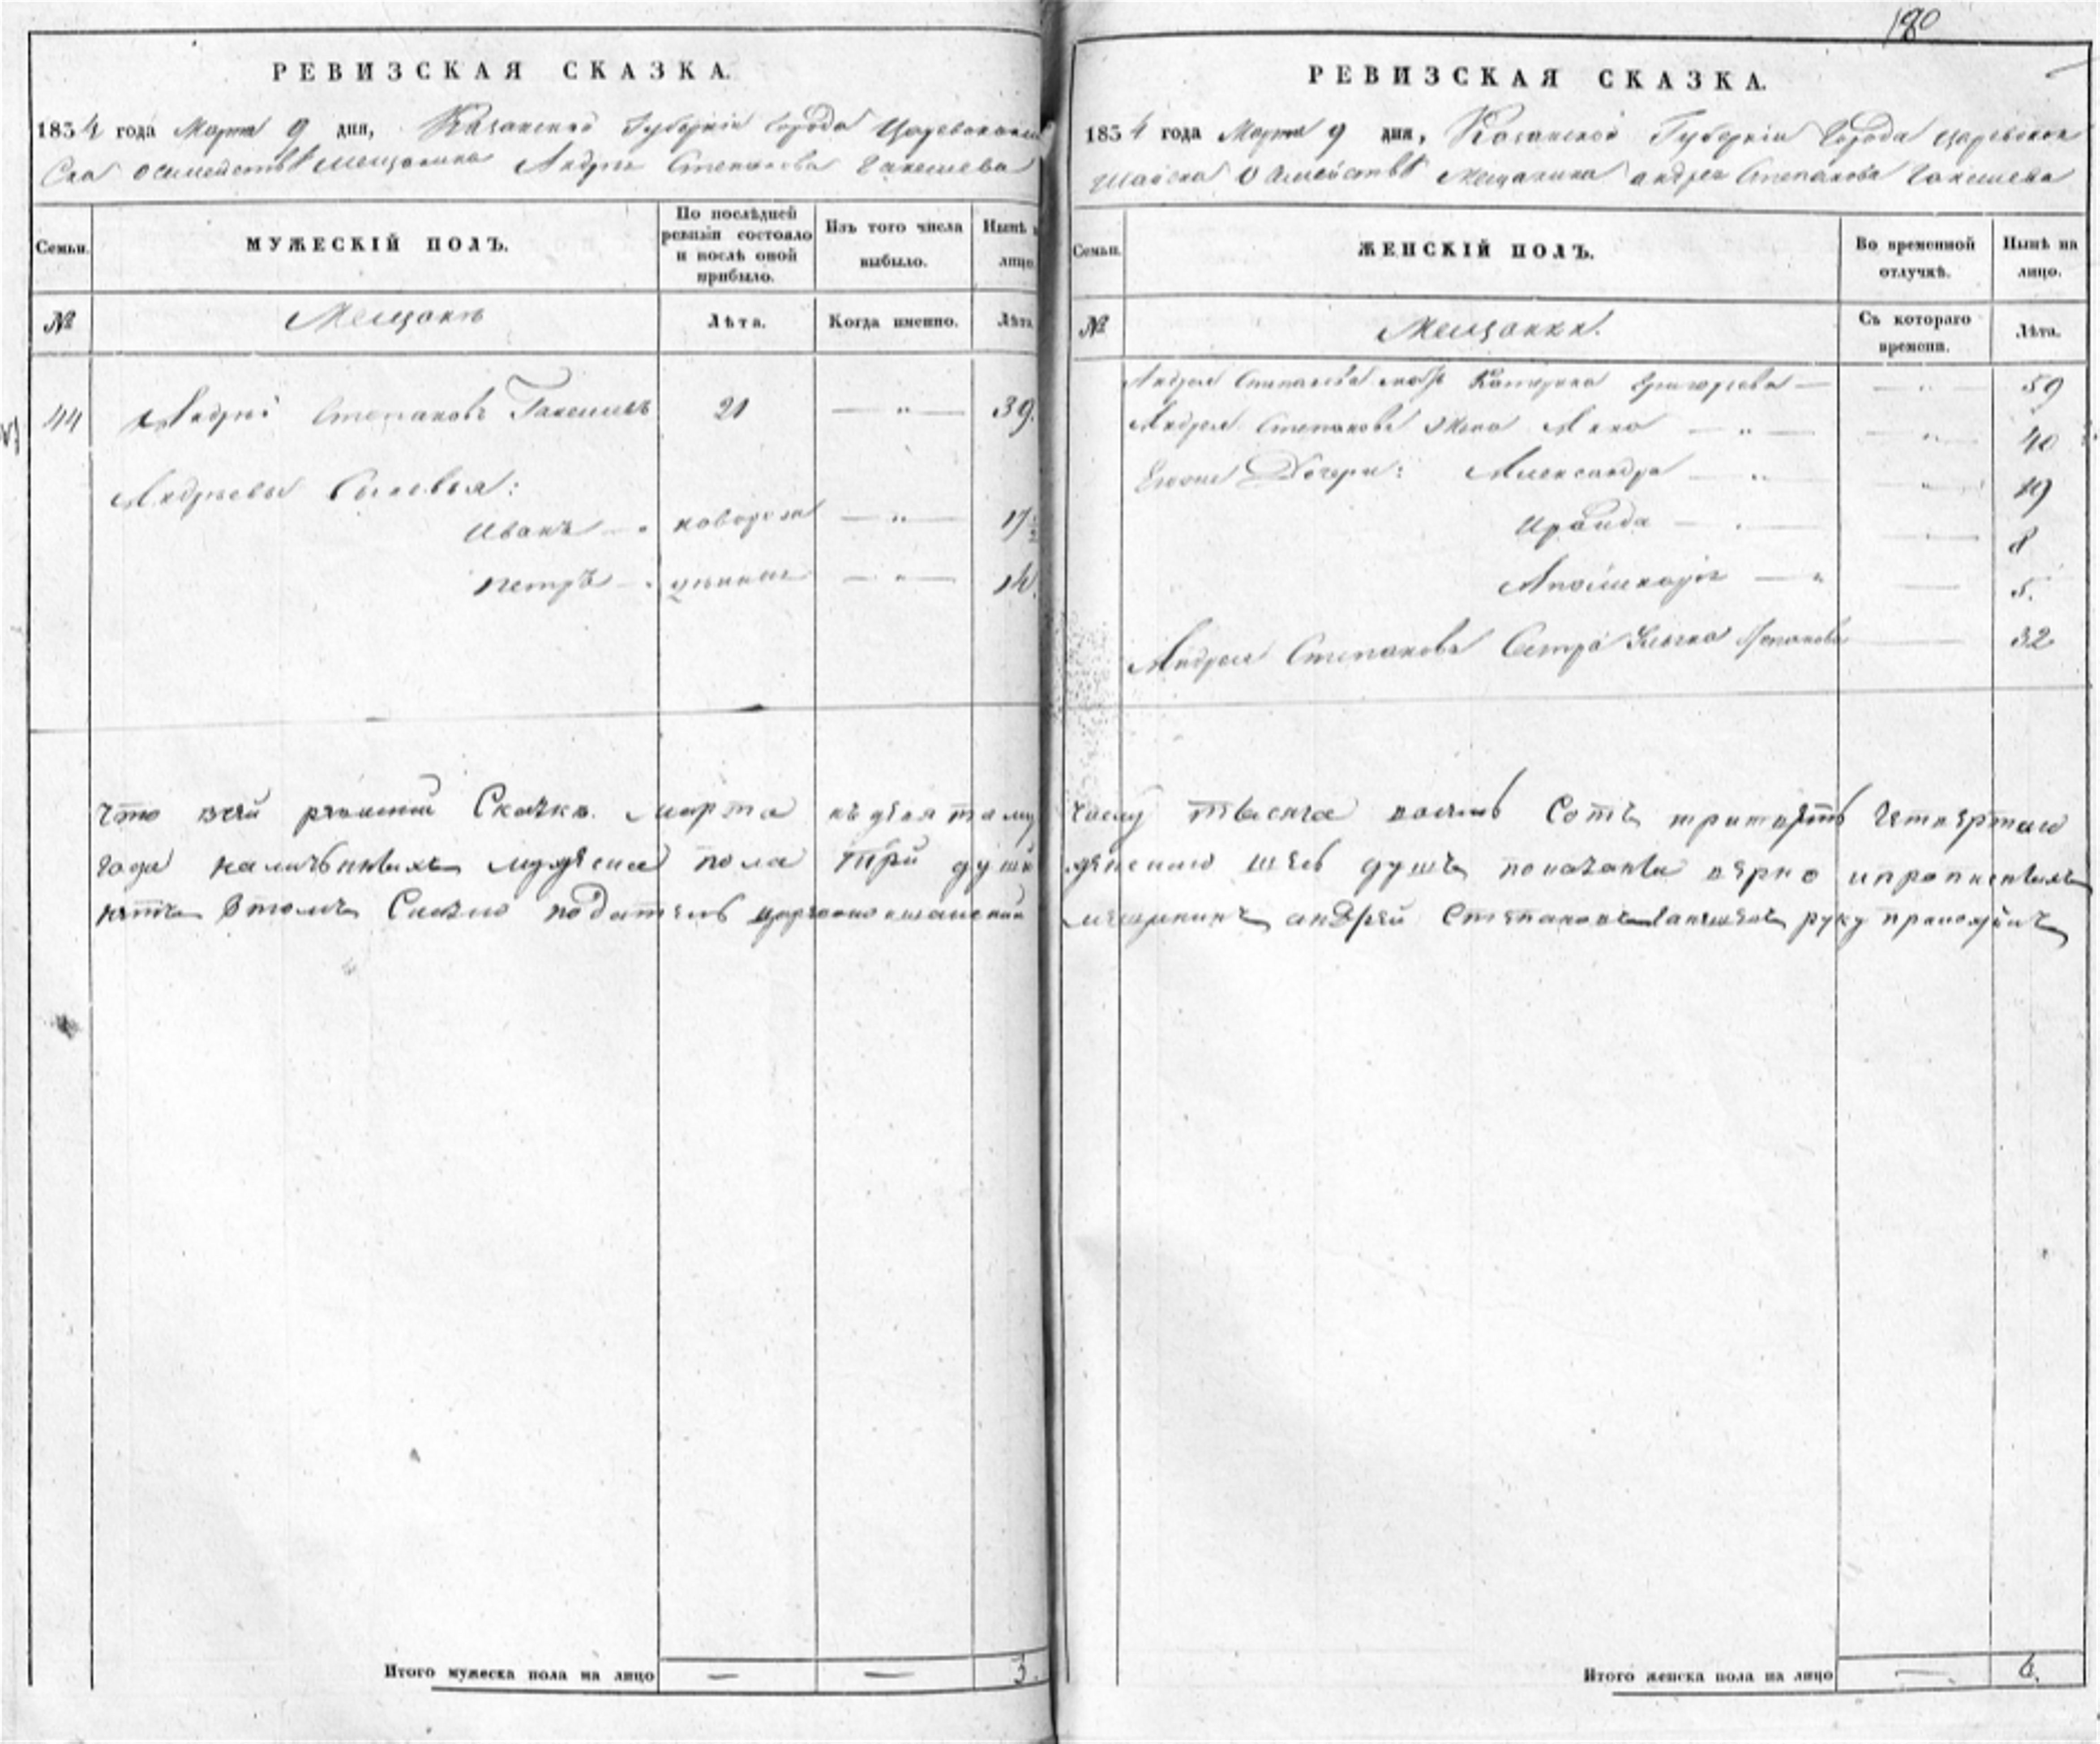 180
РЕВИЗСКАЯ СКАЗКА.
1834 года Марта 9 дня, Казанской Губерніи города Царевококшай
ска о семействѣ мещанина Андрея Степанова Гакешева
Семьи.
МУЖЕСКІЙ ПОЛЪ.
По послѣдней ревизіи состояло и послѣ оной прибыло.
Изъ того числа выбыло.
Нынѣ на лицо.
№
Мещанъ
Лѣта.
Когда именно.
Лѣта.
44 Андрей Степановъ Гакешевъ 21 — „ — 39.
Андреевы Сыновья:
Иванъ — „ новорож — „ — 17
Петръ — „ денные — „ — 14.
Что всей ревизкой Сказке марта къ девятому
года наличьныхъ мужеска пола три души
нетъ Втомъ Сказью податель царевококшайский
Итого мужеска пола на лицо — — 3.
РЕВИЗСКАЯ СКАЗКА.
1834 года Марта 9 дня, Казанской Губерніи Города Царевокок
шайска о семействѣ Мещанина андрея Степанова Гакешева
Семьи.
ЖЕНСКІЙ ПОЛЪ.
Во временной отлучкѣ.
Нынѣ на лицо.
№
Мещанки.
Съ котораго времени.
Лѣта.
Андрея Степанова мать Катерина Григорьева — — „ — 59
Андрея Степанова жена Анна — „ — — „ — 40
Дочери: Александра — „ — — „ — 19
Ираида — „ — — „ — 8
— „ — 5.
Андрея Степанова Сестра Степанова — 32
числу тысяча восемь Сотъ тритцеть четвертаго
женскаго шесь душъ показаны верно ипрописныхъ
мещанинъ андрей Степановъ Гакешевъ руку приложилъ
Итого женска пола на лицо — 6.